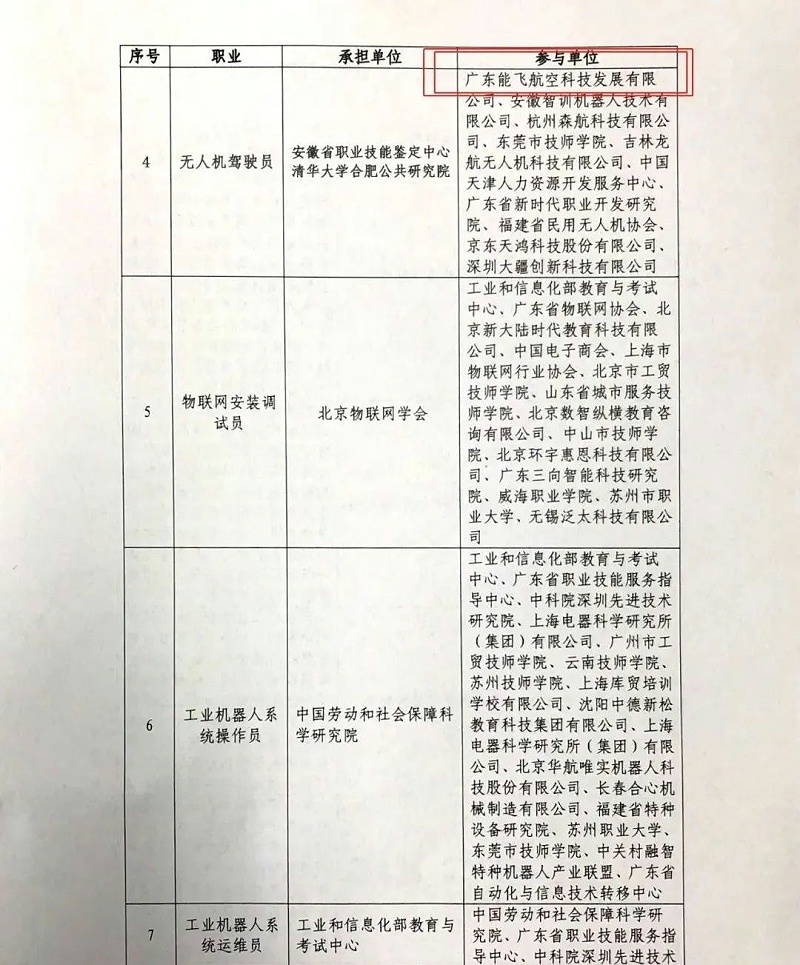 序号 职业 承担单位 参与单位
4
无人机驾驶员
安徽省职业技能鉴定中心
清华大学合肥公共研究院
广东能飞航空科技发展有限
公司、安徽智训机器人技术有
限公司、杭州森航科技有限公
司、东莞市技师学院、吉林龙
航无人机科技有限公司、中国
天津人力资源开发服务中心、
广东省新时代职业开发研究
院、福建省民用无人机协会、
京东天鸿科技股份有限公司、
深圳大疆创新科技有限公司
5
物联网安装调
试员
北京物联网学会
工业和信息化部教育与考试
中心、广东省物联网协会、北
京新大陆时代教育科技有限
公司、中国电子商会、上海市
物联网行业协会、北京市工贸
技师学院、山东省城市服务技
师学院、北京数智纵横教育咨
询有限公司、中山市技师学
院、北京环宇惠恩科技有限公
司、广东三向智能科技研究
院、威海职业学院、苏州市职
业大学、无锡泛太科技有限公
司
6
工业机器人系
统操作员
中国劳动和社会保障科
学研究院
工业和信息化部教育与考试
中心、广东省职业技能服务指
导中心、中科院深圳先进技术
研究院、上海电器科学研究所
（集团）有限公司、广州市工
贸技师学院、云南技师学院、
苏州技师学院、上海库贸培训
学校有限公司、沈阳中德新松
教育科技集团有限公司、上海
电器科学研究所（集团）有限
公司、北京华航唯实机器人科
技股份有限公司、长春合心机
械制造有限公司、福建省特种
设备研究院、苏州职业大学、
东莞市技师学院、中关村融智
特种机器人产业联盟、广东省
自动化与信息技术转移中心
7
工业机器人系
统运维员
工业和信息化部教育与
考试中心
中国劳动和社会保障科学研
究院、广东省职业技能服务指
导中心、中科院深圳先进技术